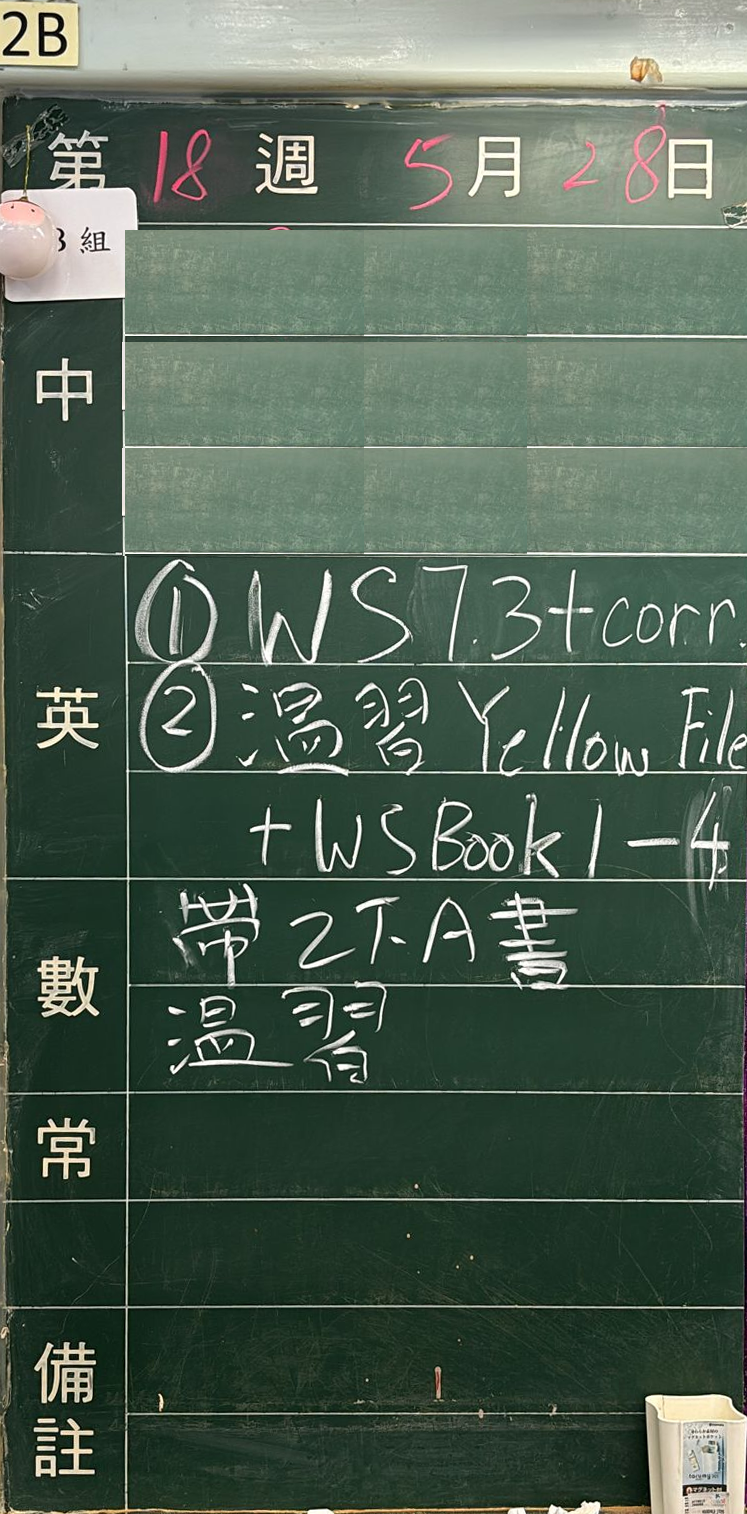 2B
第 18 週 5月28日
B 組
中
英
① WS 7.3+corr.
② 溫習 Yellow File
+ WS Book 1-4
數
帶 2下A 書
溫習
常
備註